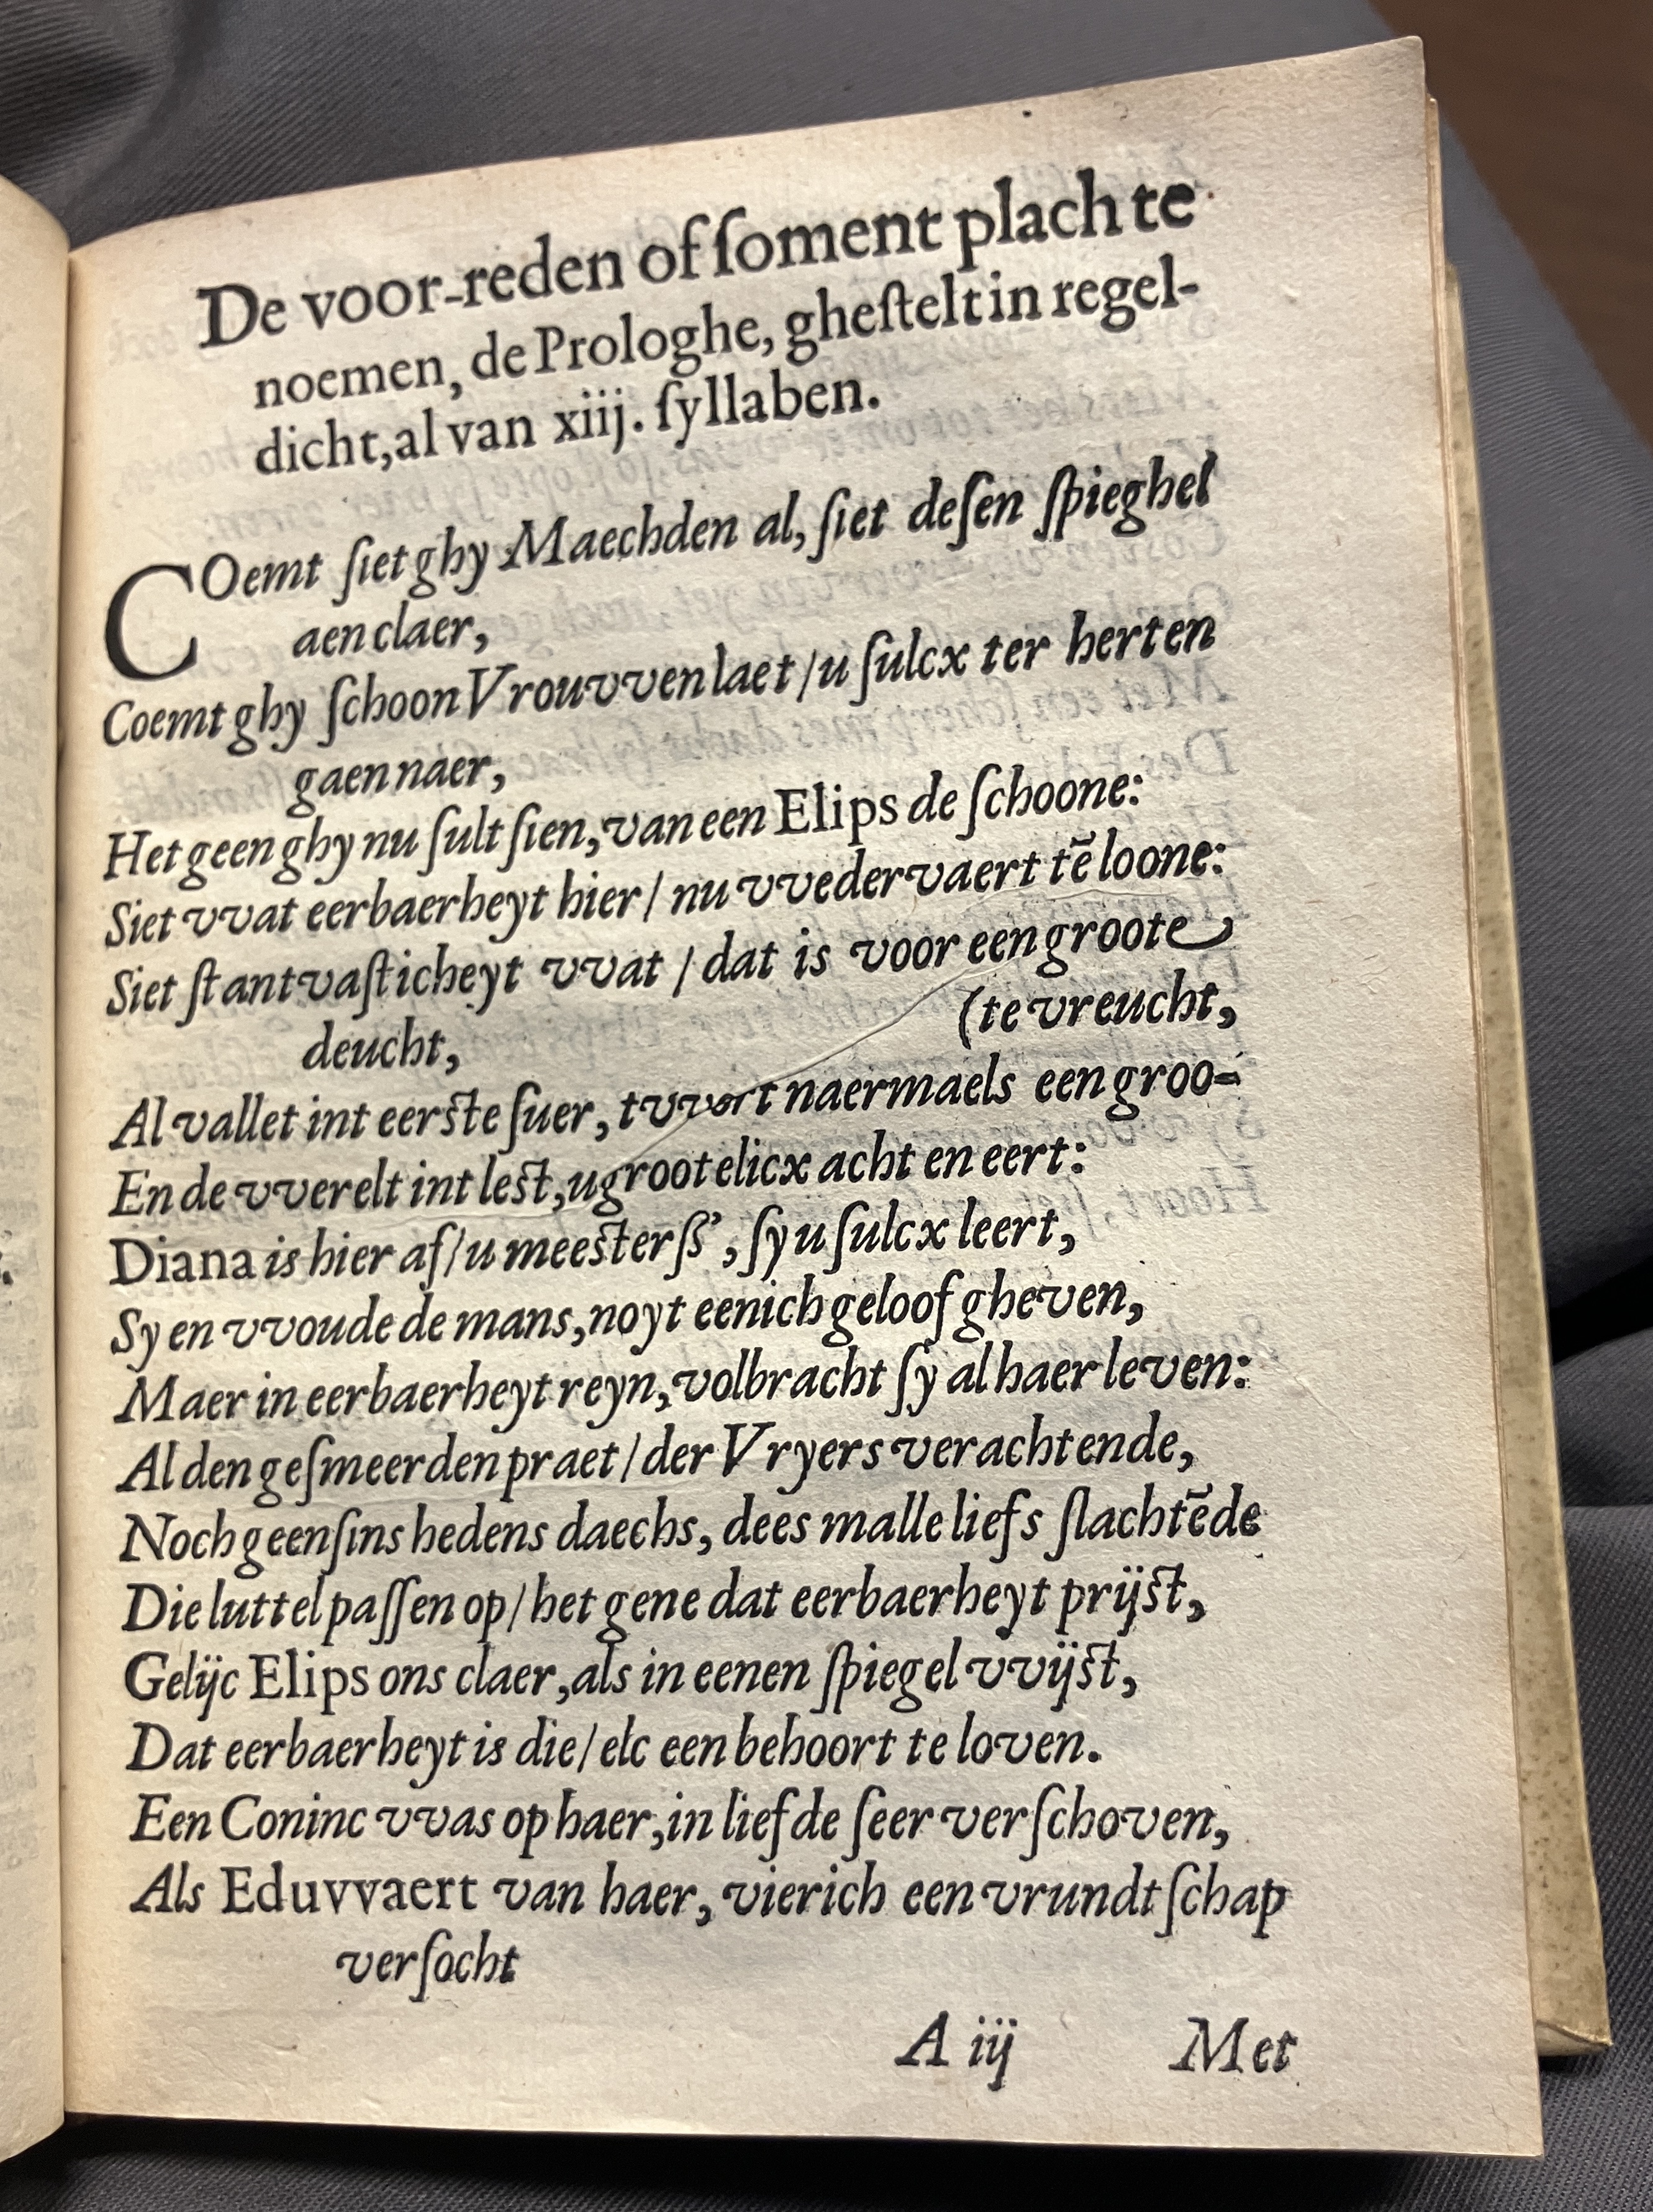 De voor-reden of ſoment plach te
noemen, de Prologhe, gheſtelt in regel-
dicht, al van xiij. ſyllaben.
COemt ſiet ghy Maechden al, ſiet deſen ſpieghel
aen claer,
Coemt ghy ſchoon Vrouvven laet / u ſulcx ter herten
gaen naer,
Het geen ghy nu ſult ſien, van een Elips de ſchoone:
Siet vvat eerbaerheyt hier / nu vvedervaert tē loone:
Siet ſtantvaſticheyt vvat / dat is voor een groote
deucht,
(te vreucht,
Al vallet int eerſte ſuer, tvvort naermaels een groo-
En de vverelt int leſt, u grootelicx acht en eert:
Diana is hier af / u meeſterſſ’, ſy u ſulcx leert,
Sy en vvoude de mans, noyt eenich geloof gheven,
Maer in eerbaerheyt reyn, volbracht ſy al haer leven:
Al den geſmeerden praet / der Vryers verachtende,
Noch geenſins hedens daechs, dees malle liefs ſlachtēde
Die luttel paſſen op / het gene dat eerbaerheyt prijſt,
Gelijc Elips ons claer, als in eenen ſpiegel vvijſt,
Dat eerbaerheyt is die / elc een behoort te loven.
Een Coninc vvas op haer, in liefde ſeer verſchoven,
Als Eduvvaert van haer, vierich een vrundtſchap
verſocht
A iij Met